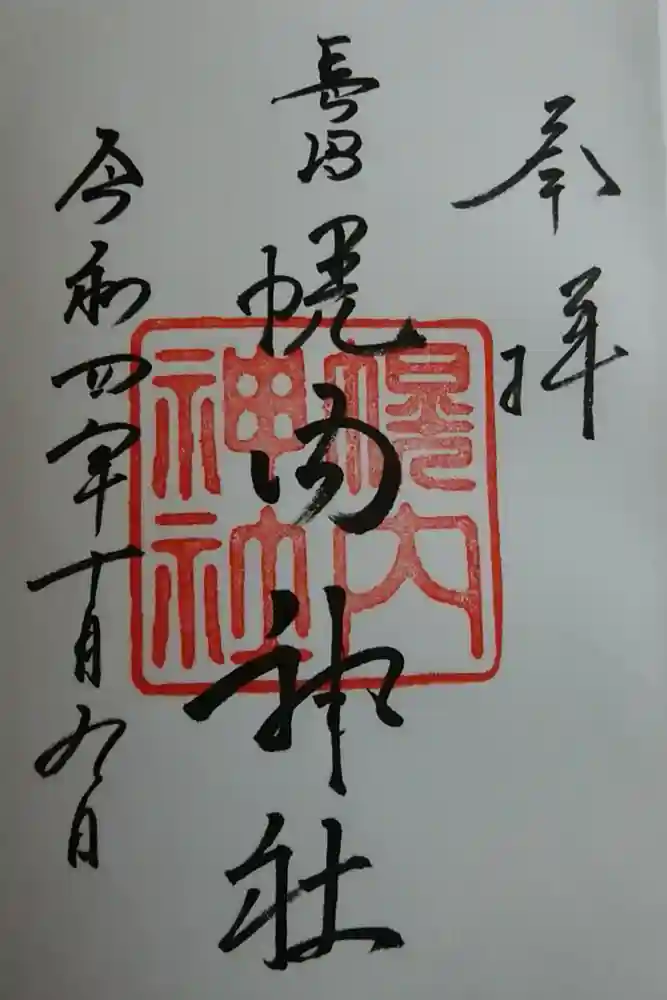 奉拝
長沼
幌内神社
令和四年十月九日
幌内
神社